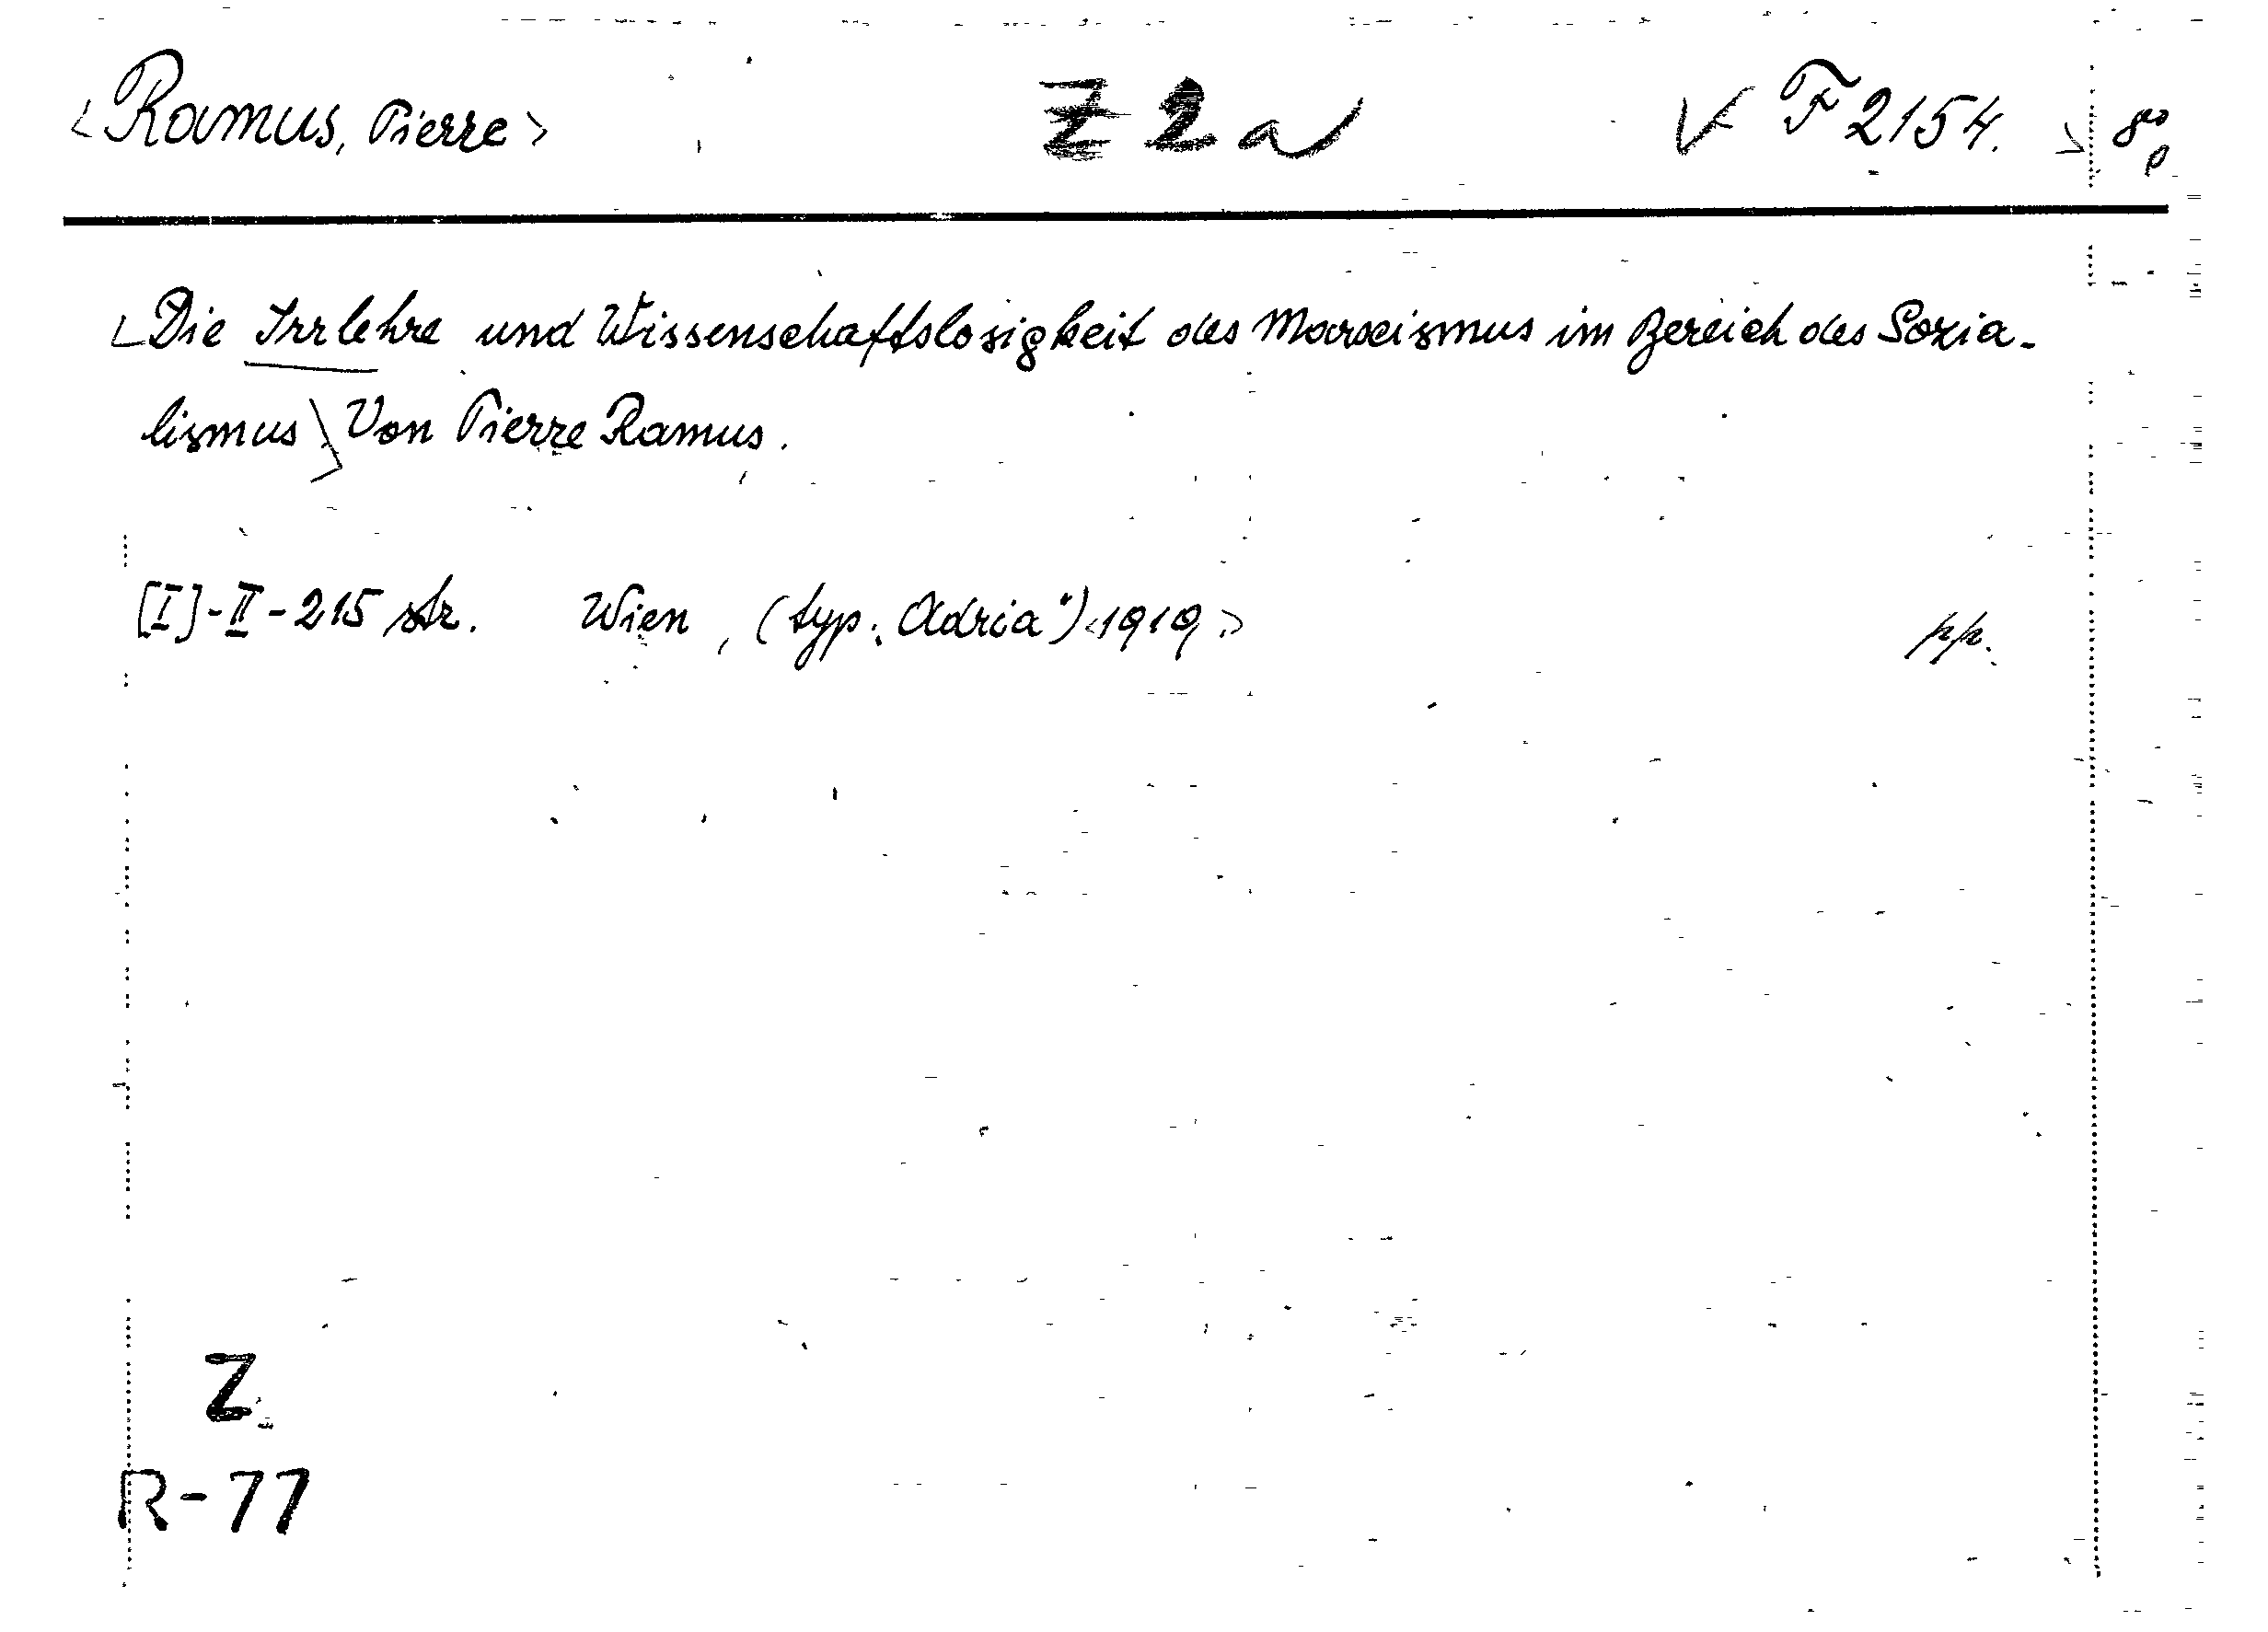 <Ramus, Pierre> Z 2 a F 2154. 8°
Die Irrlehre und Wissenschaftslosigkeit des Marxismus im Bereich des Sozia-
lismus Von Pierre Ramus.
[I]-II-215 str. Wien, (typ. „Adria“) <1919> pp.
Z
R-77